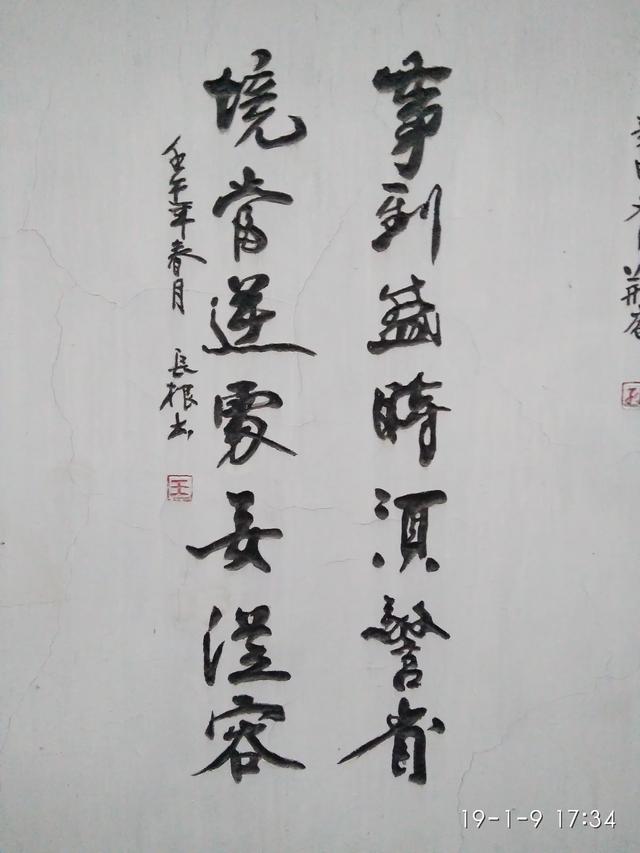 事到盛時須警省
境當逆處要從容
壬午年春月 長根书
19-1-9 17:34